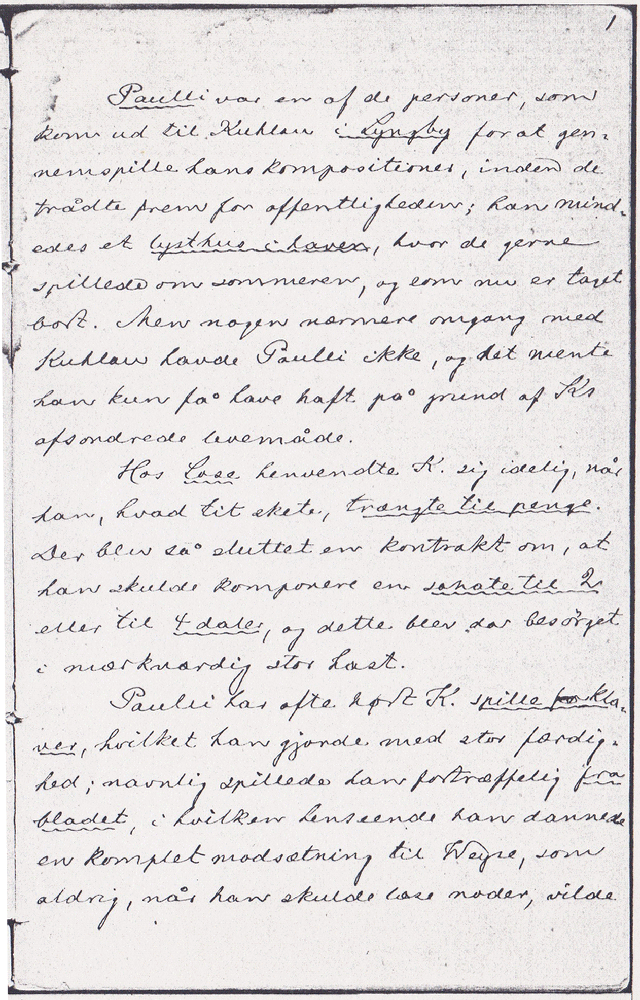 1
Paulli var en af de personer, som
kom ud til Kuhlau i Lyngby for at gen-
nemspille hans kompositioner, inden de
trådte frem for offentligheden; han mind-
edes et lysthus i haven, hvor de gerne
spillede om sommeren, og som nu er taget
bort. Men nogen nærmere omgang med
Kuhlau havde Paulli ikke, og det mente
han kun få have haft på grund af K's
afsondrede levemåde.
Hos Lose henvendte K. sig idelig, når
han, hvad tit skete, trængte til penge.
Der blev så sluttet en kontrakt om, at
han skulde komponere en sonate til 2
eller til 4 daler, og dette blev da besørget
i mærkværdig stor hast.
Paulli har ofte hørt K. spille på kla-
ver, hvilket han gjorde med stor færdig-
hed; navnlig spillede han fortræffelig fra
bladet, i hvilken henseende han dannede
en komplet modsætning til Weyse, som
aldrig, når han skulde læse noder, vilde